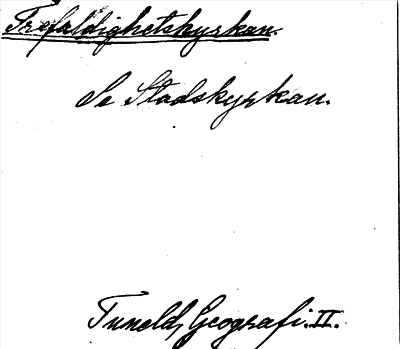 Trefaldighetskyrkan.
Se Stadskyrkan.
Tuneld, Geografi. II.